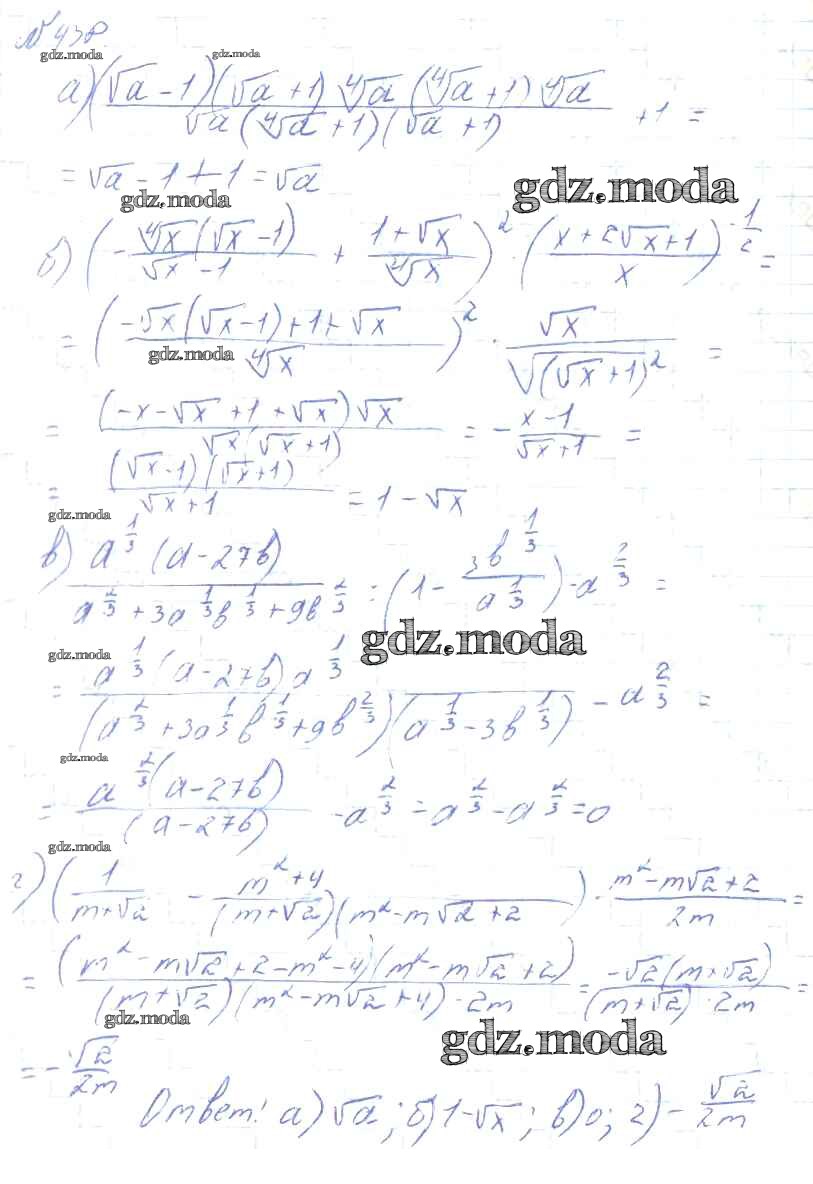 № 438
gdz.moda gdz.moda
а) (√a - 1)(√a + 1) ∜a (∜a + 1) ∜a / √a (∜a + 1)(√a + 1) + 1 =
= √a - 1 + 1 = √a
gdz.moda gdz.moda
б) (- ∜x (√x - 1) / √x - 1 + 1 + √x / ∜x)² · (x + 2√x + 1 / x)^-1/2 =
= (-√x (√x - 1) + 1 + √x / ∜x)² · √x / √(√x + 1)² =
gdz.moda
= (-x - √x + 1 + √x) √x / √x (√x + 1) = - x - 1 / √x + 1 =
= (√x - 1)(√x + 1) / √x + 1 = 1 - √x
gdz.moda
в) a^1/3 (a - 27b) / a^2/3 + 3a^1/3 b^1/3 + 9b^2/3 : (1 - 3b^1/3 / a^1/3) - a^2/3 =
gdz.moda gdz.moda
= a^1/3 (a - 27b) a^1/3 / (a^2/3 + 3a^1/3 b^1/3 + 9b^2/3)(a^1/3 - 3b^1/3) - a^2/3 =
gdz.moda
= a^2/3 (a - 27b) / (a - 27b) - a^2/3 = a^2/3 - a^2/3 = 0
gdz.moda
г) (1 / m + √2 - m² + 4 / (m + √2)(m² - m√2 + 2) · m² - m√2 + 2 / 2m =
= (m² - m√2 + 2 - m² - 4)(m² - m√2 + 2) / (m + √2)(m² - m√2 + 4) · 2m = -√2 (m + √2) / (m + √2) · 2m =
gdz.moda gdz.moda
= - √2 / 2m
Ответ: а) √a; б) 1 - √x; в) 0; г) - √2 / 2m